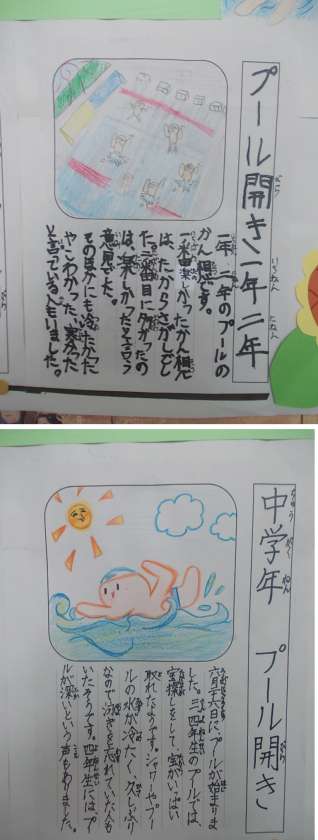 プール開き 一年 二年
一年 二年のプールの
かん想です。
一番楽しかったかん想
は、たからさがしでし
た。二番目に多かったの
は、楽しかったと言う
意見でした。
その他にも冷たかった
やこわかった、寒かった
と言っている人もいました。
中学年 プール開き
六月二十六日に、プールが始まりま
した。三、四年生のプールでは、
宝探しをして、宝がいっぱい
取れたようです。シャワーやプー
ルの水が冷たく、久しぶり
なので泳ぎを忘れていた人も
いたそうです。四年生にはプー
ルが深いという声もありました。